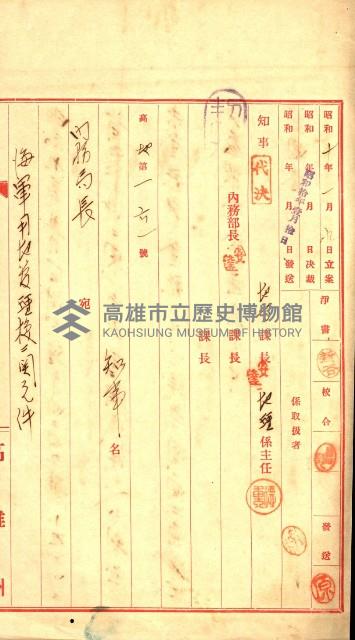 昭和十年一月 日立案
昭和 年 月 日決裁
昭和 年 月 日發送
昭和拾年壹月拾日
淨書
校合
發送
係取扱者
知事
代決
內務部長
地理課長
課長
課長
地理係主任
高地第一六一號
知事名
內務局長 宛
海軍用地受理按ニ関スル件
高雄州
高雄市立歷史博物館
KAOHSIUNG MUSEUM OF HISTORY